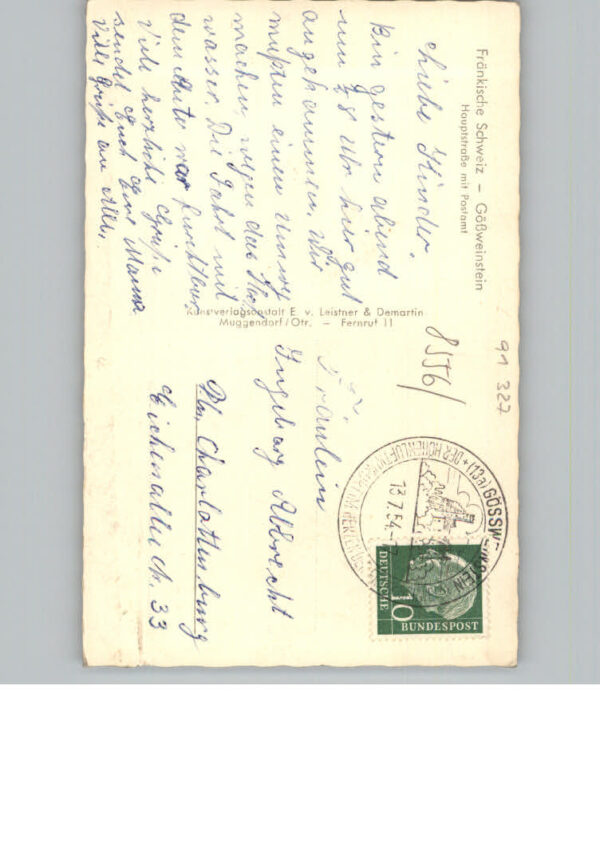 Fränkische Schweiz – Gößweinstein
Hauptstraße mit Postamt
Liebe Kinder.
Bin gestern Abend
um ½8 Uhr hier gut
angekommen. Wir
mußten einen
machen, wegen das
wasser. Die Fahrt mit
dem Auto war furchtbar
Viele herzliche Grüße
sendet Euch Eure Mama
Viele Grüße an Alle.
Kunstverlagsanstalt E. v. Leistner & Demartin
Muggendorf/Ofr. – Fernruf 11
8556/
91 327
Fräulein
Ingeborg Albrecht
Bln. Charlottenburg
Eichenallee 33
GÖSSWEINSTEIN
DER HÖHENLUFTKURORT
13.7.54
DEUTSCHE
10
BUNDESPOST